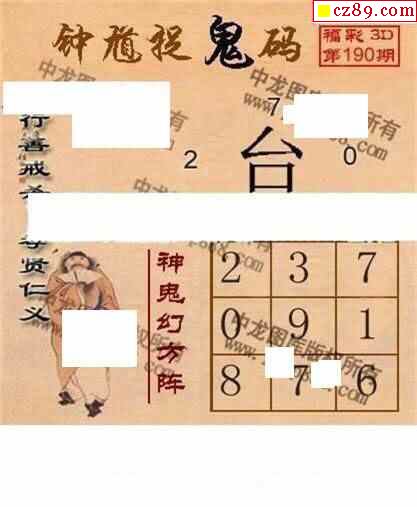 cz89.com
钟馗捉鬼码
福彩3D
第190期
7
台
2
0
行善戒
尊贤仁义
神鬼幻方阵
2 3 7
0 9 1
8 7 6
中龙图库版权所有